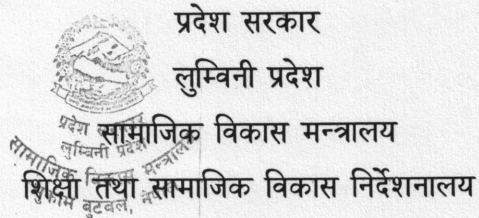 प्रदेश सरकार
लुम्विनी प्रदेश
सामाजिक विकास मन्त्रालय
शिक्षा तथा सामाजिक विकास निर्देशनालय
प्रदेश सरकार
लुम्बिनी प्रदेश
सामाजिक विकास मन्त्रालय
बुटवल,